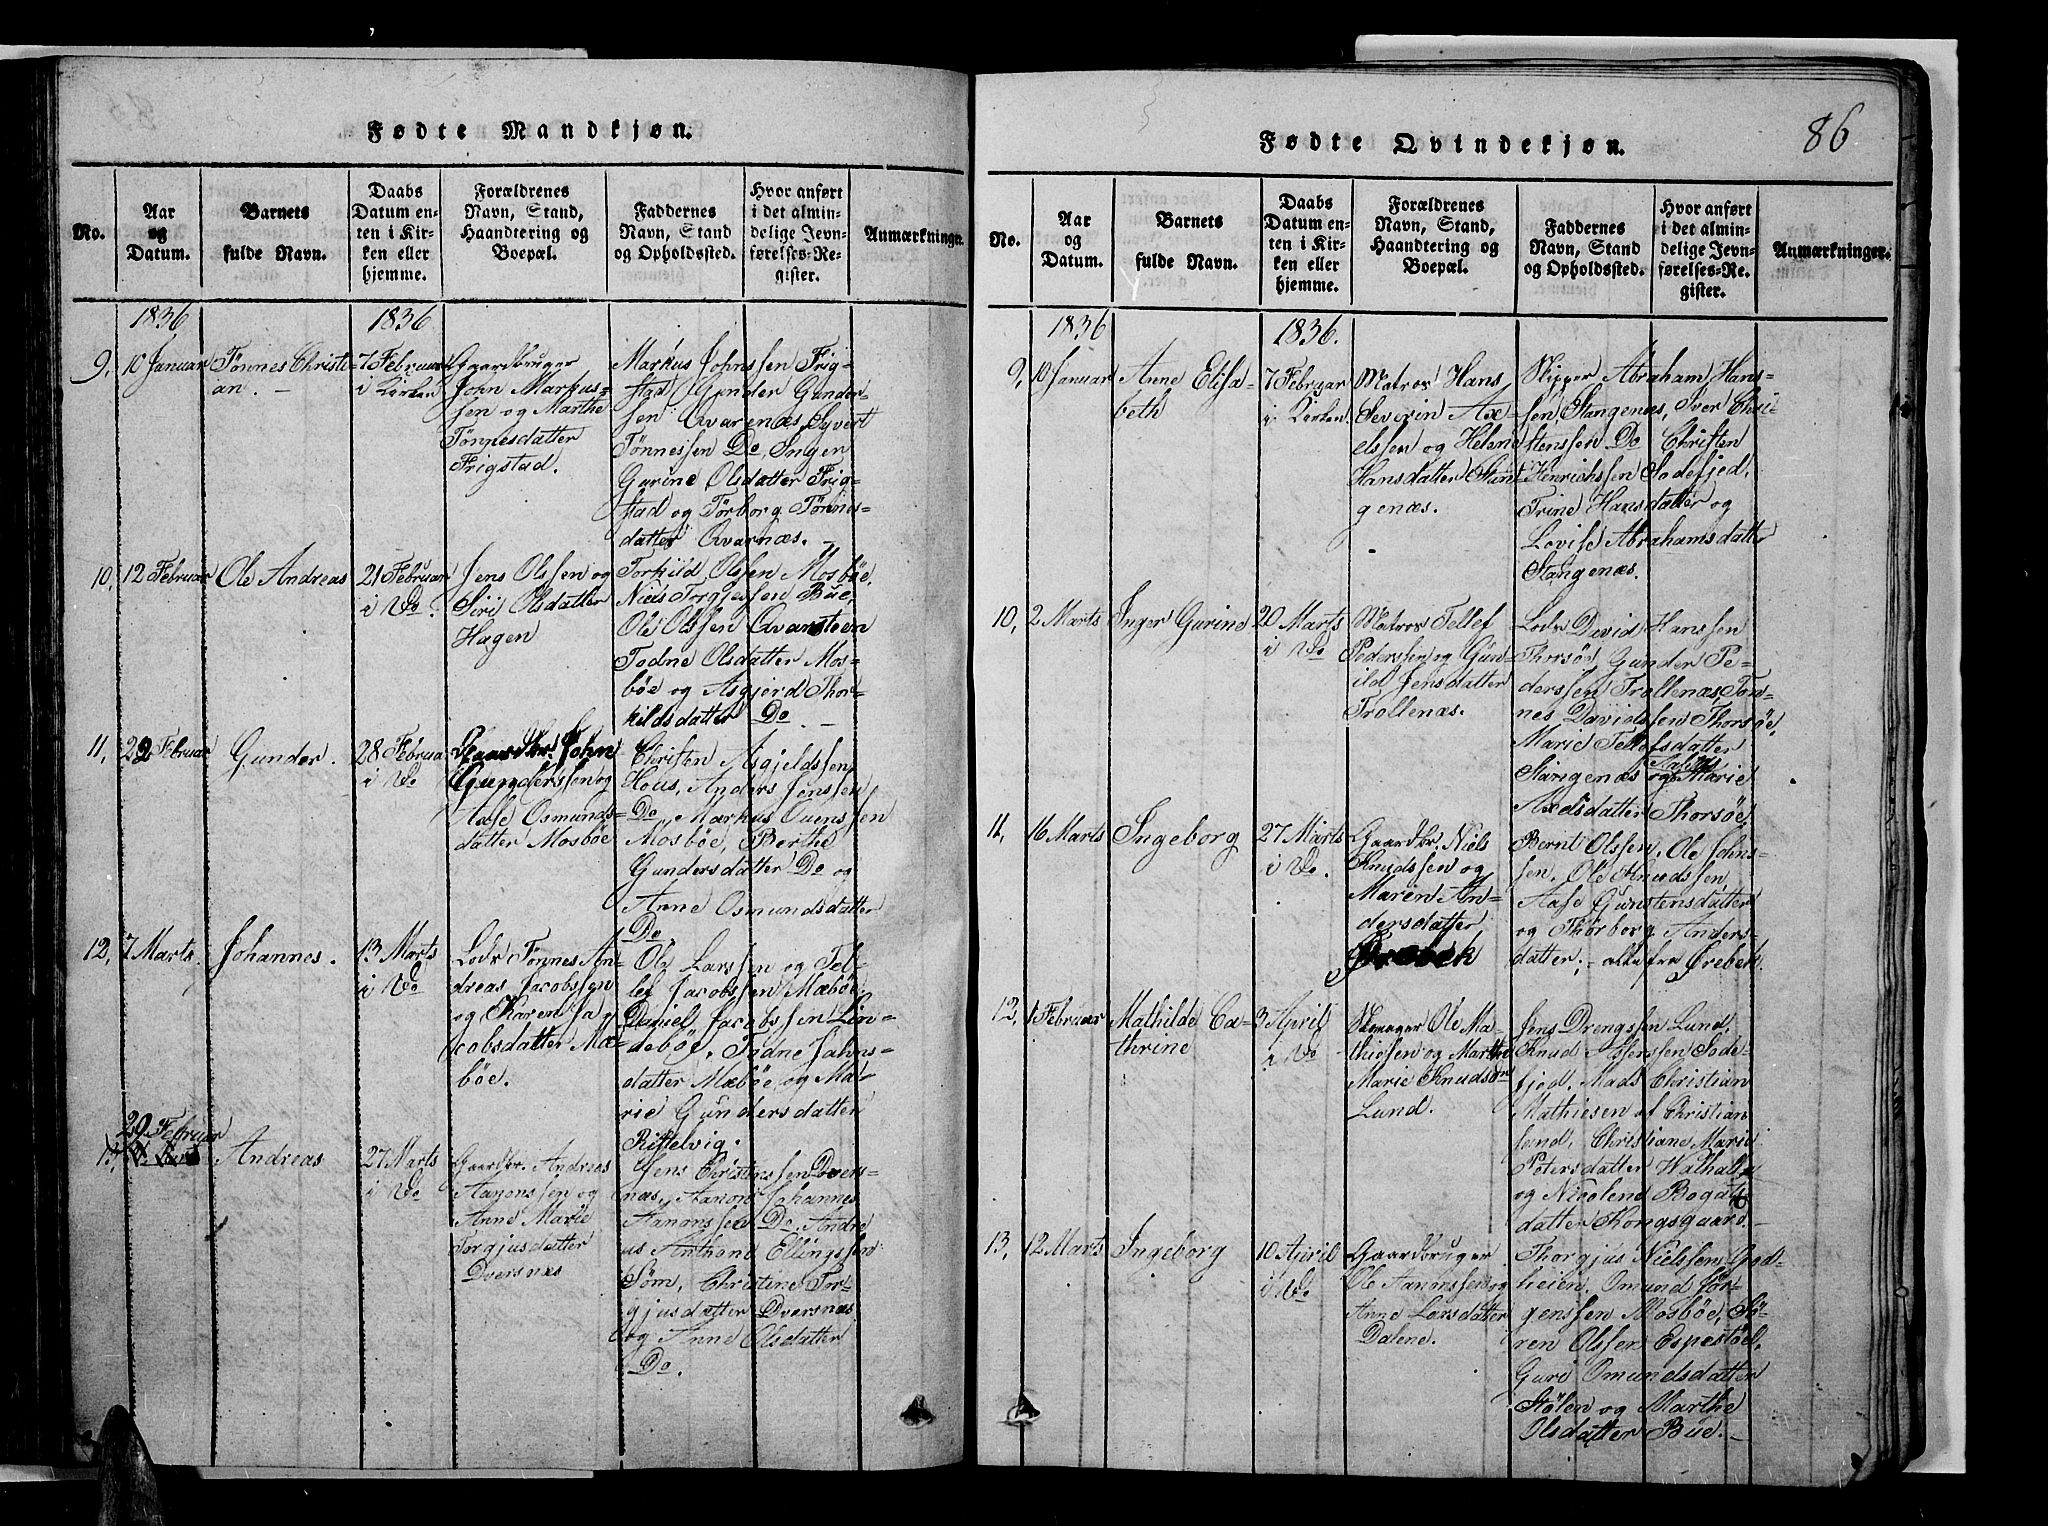 86
Fødte Mandkjøn.
No.
Aar
og
Datum.
Barnets
fulde Navn.
Daabs
Datum en-
ten i Kir-
ken eller
hjemme.
Forældrenes
Navn, Stand,
Haandtering og
Boepæl.
Faddernes
Navn, Stand
og Opholdssted.
Hvor anført
i det almin-
delige Jevn-
førelses-Re-
gister.
Anmærkninger.
1836
1836
9,
10 Januar
Tønnes Christi-
an. -
7 Februar
i Kirken
Gaardbruger
John Markus-
sen og Marthe
Tønnesdatter
Frigstad.
Markus Johnssen Frig-
stad Gunder Gunder-
sen Qvarenæs, Syvert
Tønnessen Do, Inger
Gurine Olsdatter Frig-
stad og Tørborg Tønnes-
datter Qvarnæs. -
10,
12 Februar
Ole Andreas
21 Februar
i Do.
Jens Olssen og
Siri Olsdatter
Hagen
Torkild Olssen Mosbøe,
Niels Torgjessen Bue,
Ole Olssen Qvarsteen
Todne Olsdatter Mos-
bøe og Asgjerd Thor-
kildsdatter Do. -
11,
22 Februar
Gunder.
28 Februar
i Do
Gaardbr. John
Gunderssen og
Aase Osmunds-
datter Mosbøe
Christen Asgjeldssen
Hous, Anders Jenssen
Do, Markus Ouenssen
Mosbøe, Berthe
Gundersdatter Do og
Anne Osmundsdatter
Do
12,
7 Marts.
Johannes.
13 Marts
i Do
Lods Tønnes An-
dreas Jacobssen
og Karen Ja-
cobsdatter Mæ-
bøe.
Ole Larssen og Tel-
lef Jacobssen Mæbøe
Daniel Jacobssen Lin-
debøe, Todne Jahns-
datter Mæbøe og Ma-
rie Gundersdatter
Rittelvig.
13,
29 Februar
Andreas
27 Marts
i Do
Gaardbr. Andreas
Aanonssen og
Anne Marie
Torgjusdatter
Dversnæs
Jens Christenssen Dvers-
næs, Aanon Johannes
Aanonssen Do, Andre
us Anthoni Ellingssen
Søm, Christine Tor-
gjusdatter Dversnæs
og Anne Olsdatter
Do.
Fødte Qvindekjøn.
No.
Aar
og
Datum.
Barnets
fulde Navn.
Daabs
Datum en-
ten i Kir-
ken eller
hjemme.
Forældrenes
Navn, Stand,
Haandtering og
Boepæl.
Faddernes
Navn, Stand
og Opholdssted.
Hvor anført
i det almin-
delige Jevn-
førelses-Re-
gister.
Anmærkninger.
1836
1836.
9,
10 Januar
Anne Elisa-
beth
7 Februar
i Kirken.
Matros Hans
Severin Ax-
elssen og Helene
Hansdatter Stan-
genæs.
Skipper Abraham Hans-
sen, Stangenæs, Sver Chri-
stenssen Do Christen
Henrichssen Sodefjed,
Trine Hansdatter og
Lovise Abrahamsdatter
Stangenæs.
10,
2 Marts
Inger Gurine
20 Marts
i Do
Matros Tellef
Pederssen og Gun-
ild Jensdatter
Trollenæs.
Lods David Hanssen
Thorsøe, Gunder Pe-
derssen Trollenæs, Tøn-
nes Davidssen Thorsøe,
Marie Tellefsdatter
Stangenæs og Marie
Axelsdatter Thorsøe
11,
16 Marts
Ingeborg
27 Marts
i Do.
Gaardbr. Niels
Knudssen og
Maren An-
dersdatter
Ørebek
Bernt Olssen, Ole Johns-
sen, Ole Knudssen
Aase Gunstensdatter
og Thorborg Anders-
datter; - alle fra Ørebek.
12,
1 Februar
Mathilde Ca-
thrine
3 April
i Do
Skomager Ole Ma-
thiesen og Marthe
Marie Knudsdtr
Lund.
Jens Drengssen Lund,
Knud Asserssen Sode-
fjed, Mads Christian
Mathiesen af Christian
sand, Christiane Marie
Petersdatter Walhalla
og Nicolene Bogats
datter Kongsgaard. -
13,
12 Marts
Ingeborg
10 April
i Do
Gaardbruger
Ole Aanonssen og
Anne Larsdatter
Dalene.
Thorgjus Nielssen God-
heien, Omund Jør-
genssen Mosbøe, Sø-
ren Olssen Espestøel,
Guri Omundsdatter
Stølen og Marthe
Olsdatter Bue. -